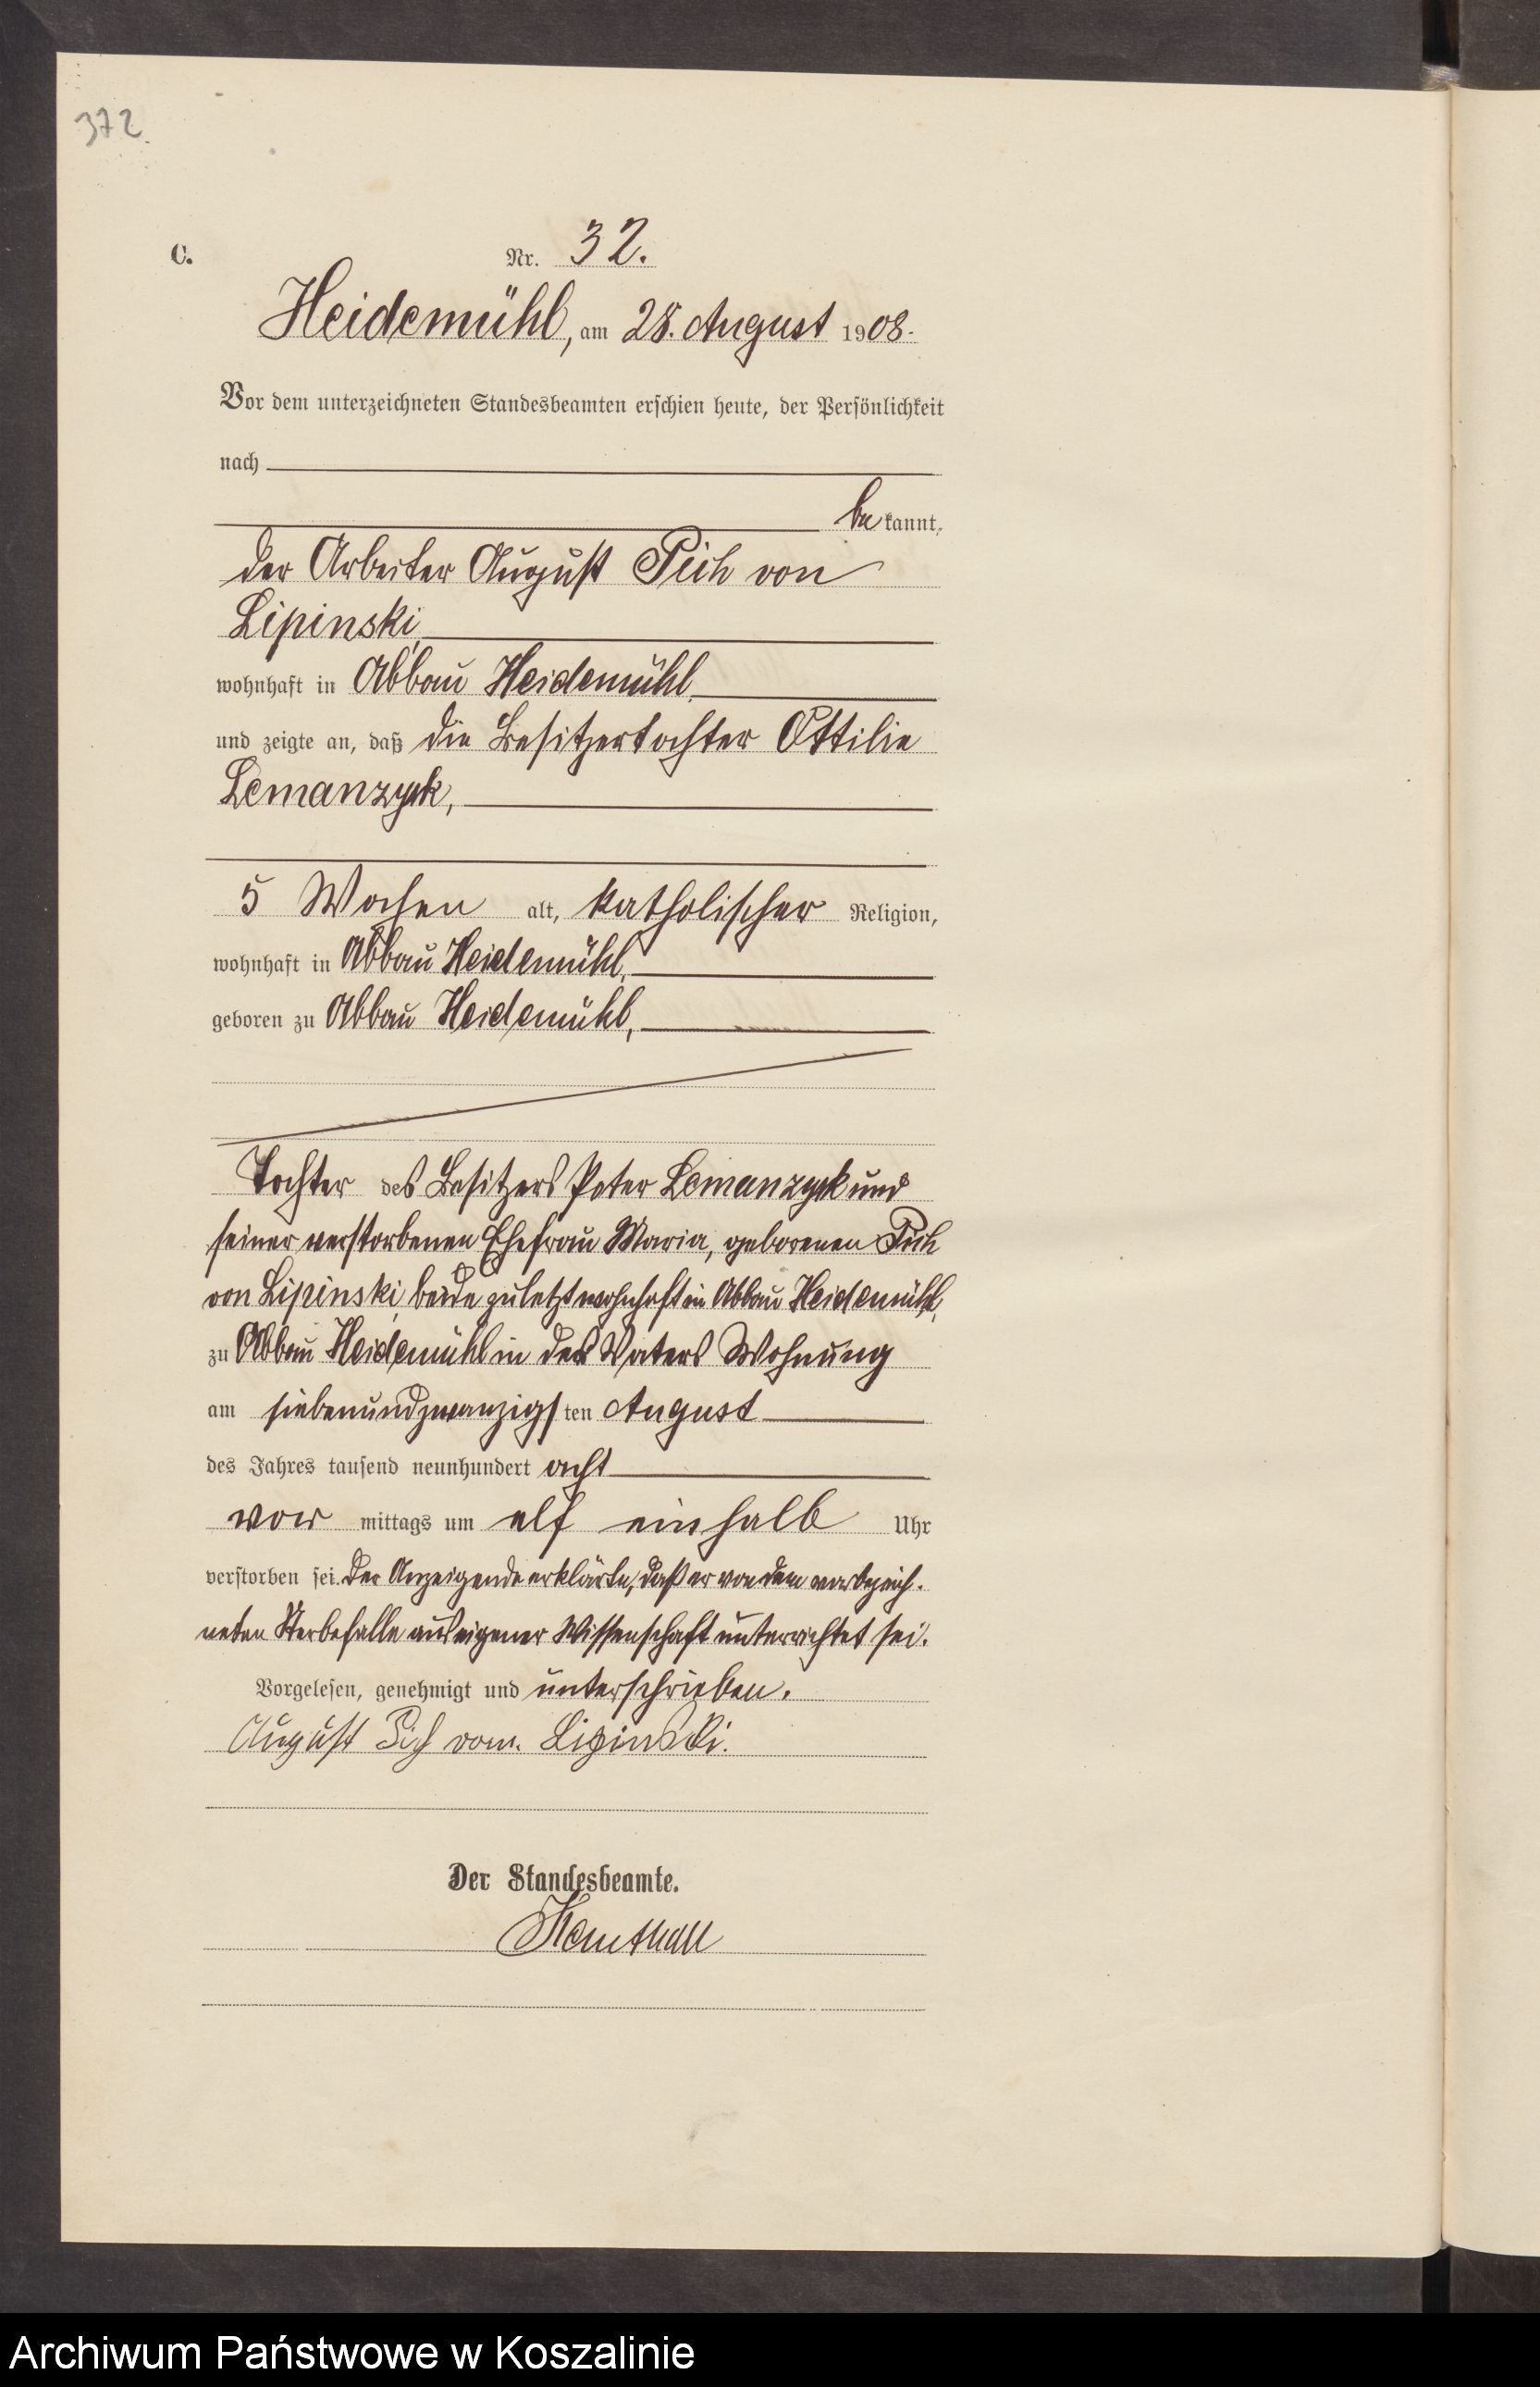 372.
C.
Nr. 32.
Heidemühl, am 28. August 1908.
Vor dem unterzeichneten Standesbeamten erschien heute, der Persönlichkeit
nach
be kannt,
der Arbeiter August Pich von
Lipinski,
wohnhaft in Abbau Heidemühl,
und zeigte an, daß die Besitzertochter Ottilie
Lemanzyk,
5 Wochen alt, katholischer Religion,
wohnhaft in Abbau Heidemühl,
geboren zu Abbau Heidemühl,
Tochter des Besitzers Peter Lemanzyk und
seiner verstorbenen Ehefrau Maria, geborenen Pich
von Lipinski, beide zuletzt wohnhaft in Abbau Heidemühl,
zu Abbau Heidemühl in des Vaters Wohnung
am siebenundzwanzigsten August
des Jahres tausend neunhundert acht
vor mittags um elf einhalb Uhr
verstorben sei. Der Anzeigende erklärte, daß er von dem vorbezeich-
neten Sterbefalle aus eigener Wissenschaft unterrichtet sei.
Vorgelesen, genehmigt und unterschrieben.
August Pich von Lipinski.
Der Standesbeamte.
Archiwum Państwowe w Koszalinie